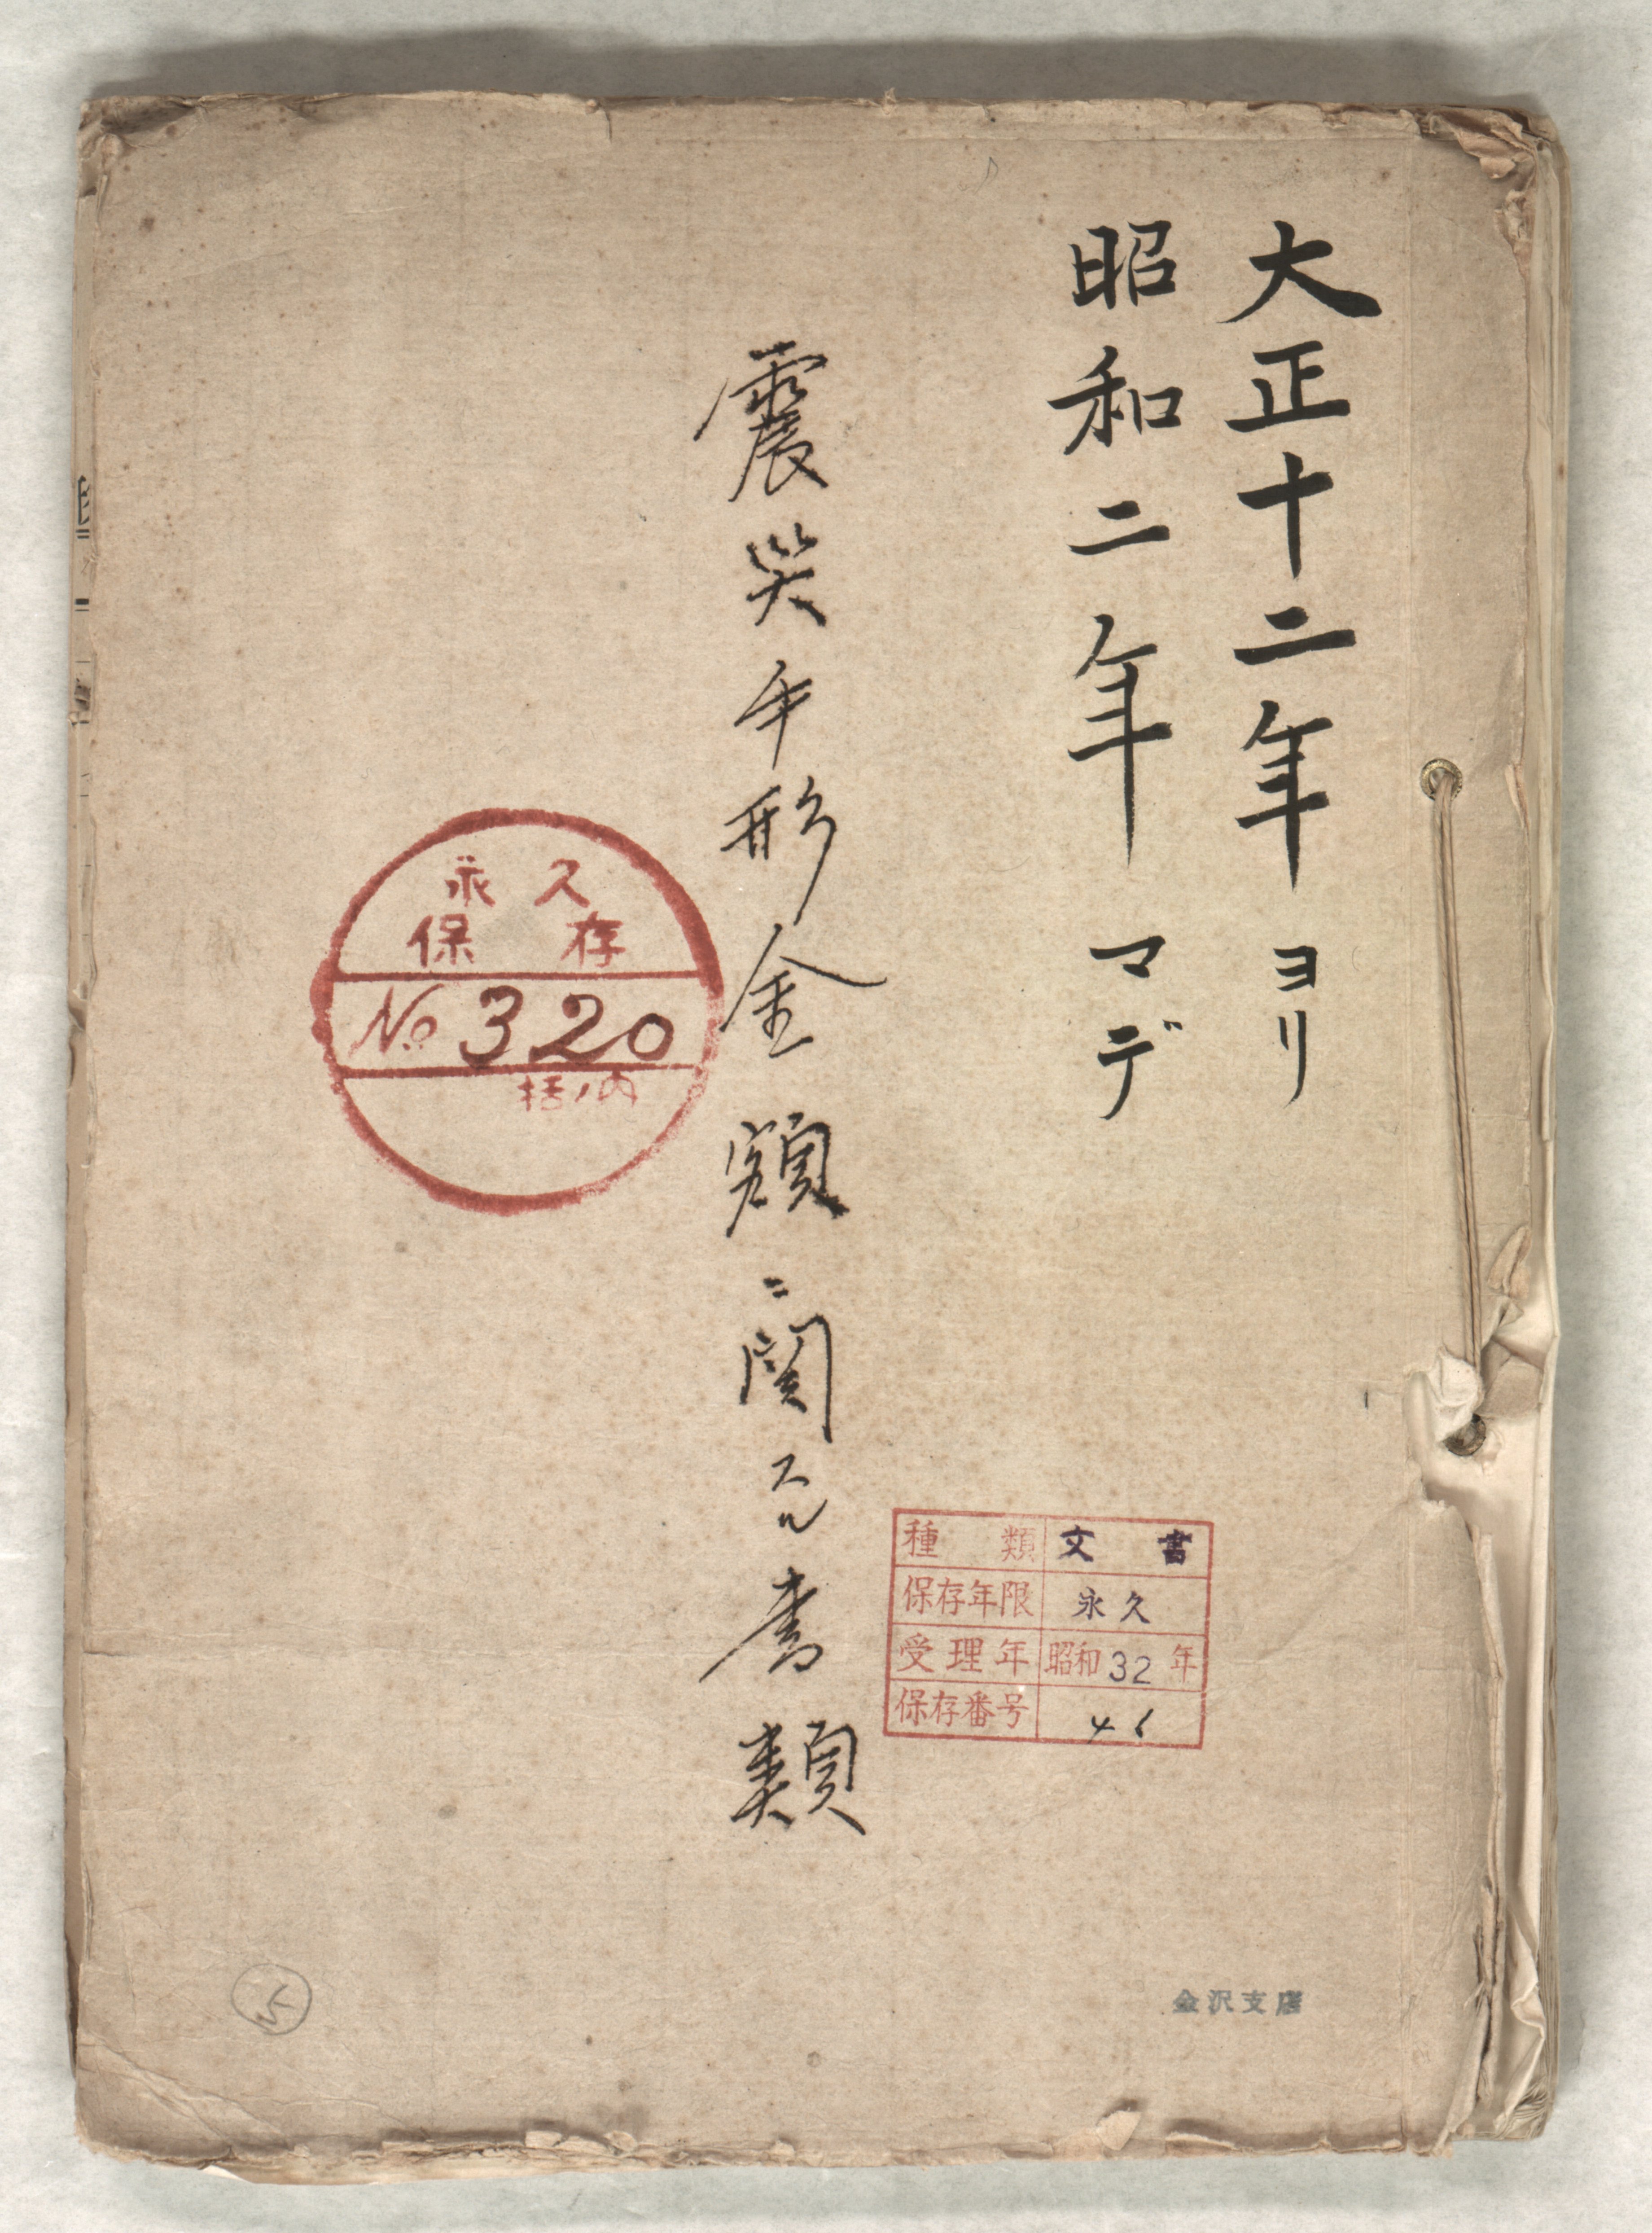 大正十二年ヨリ
昭和二年マデ
震災手形金額ニ関スル書類
永久
保存
No. 320
括ノ内
種類 文書
保存年限 永久
受理年 昭和32年
保存番号 46
金沢支店
5